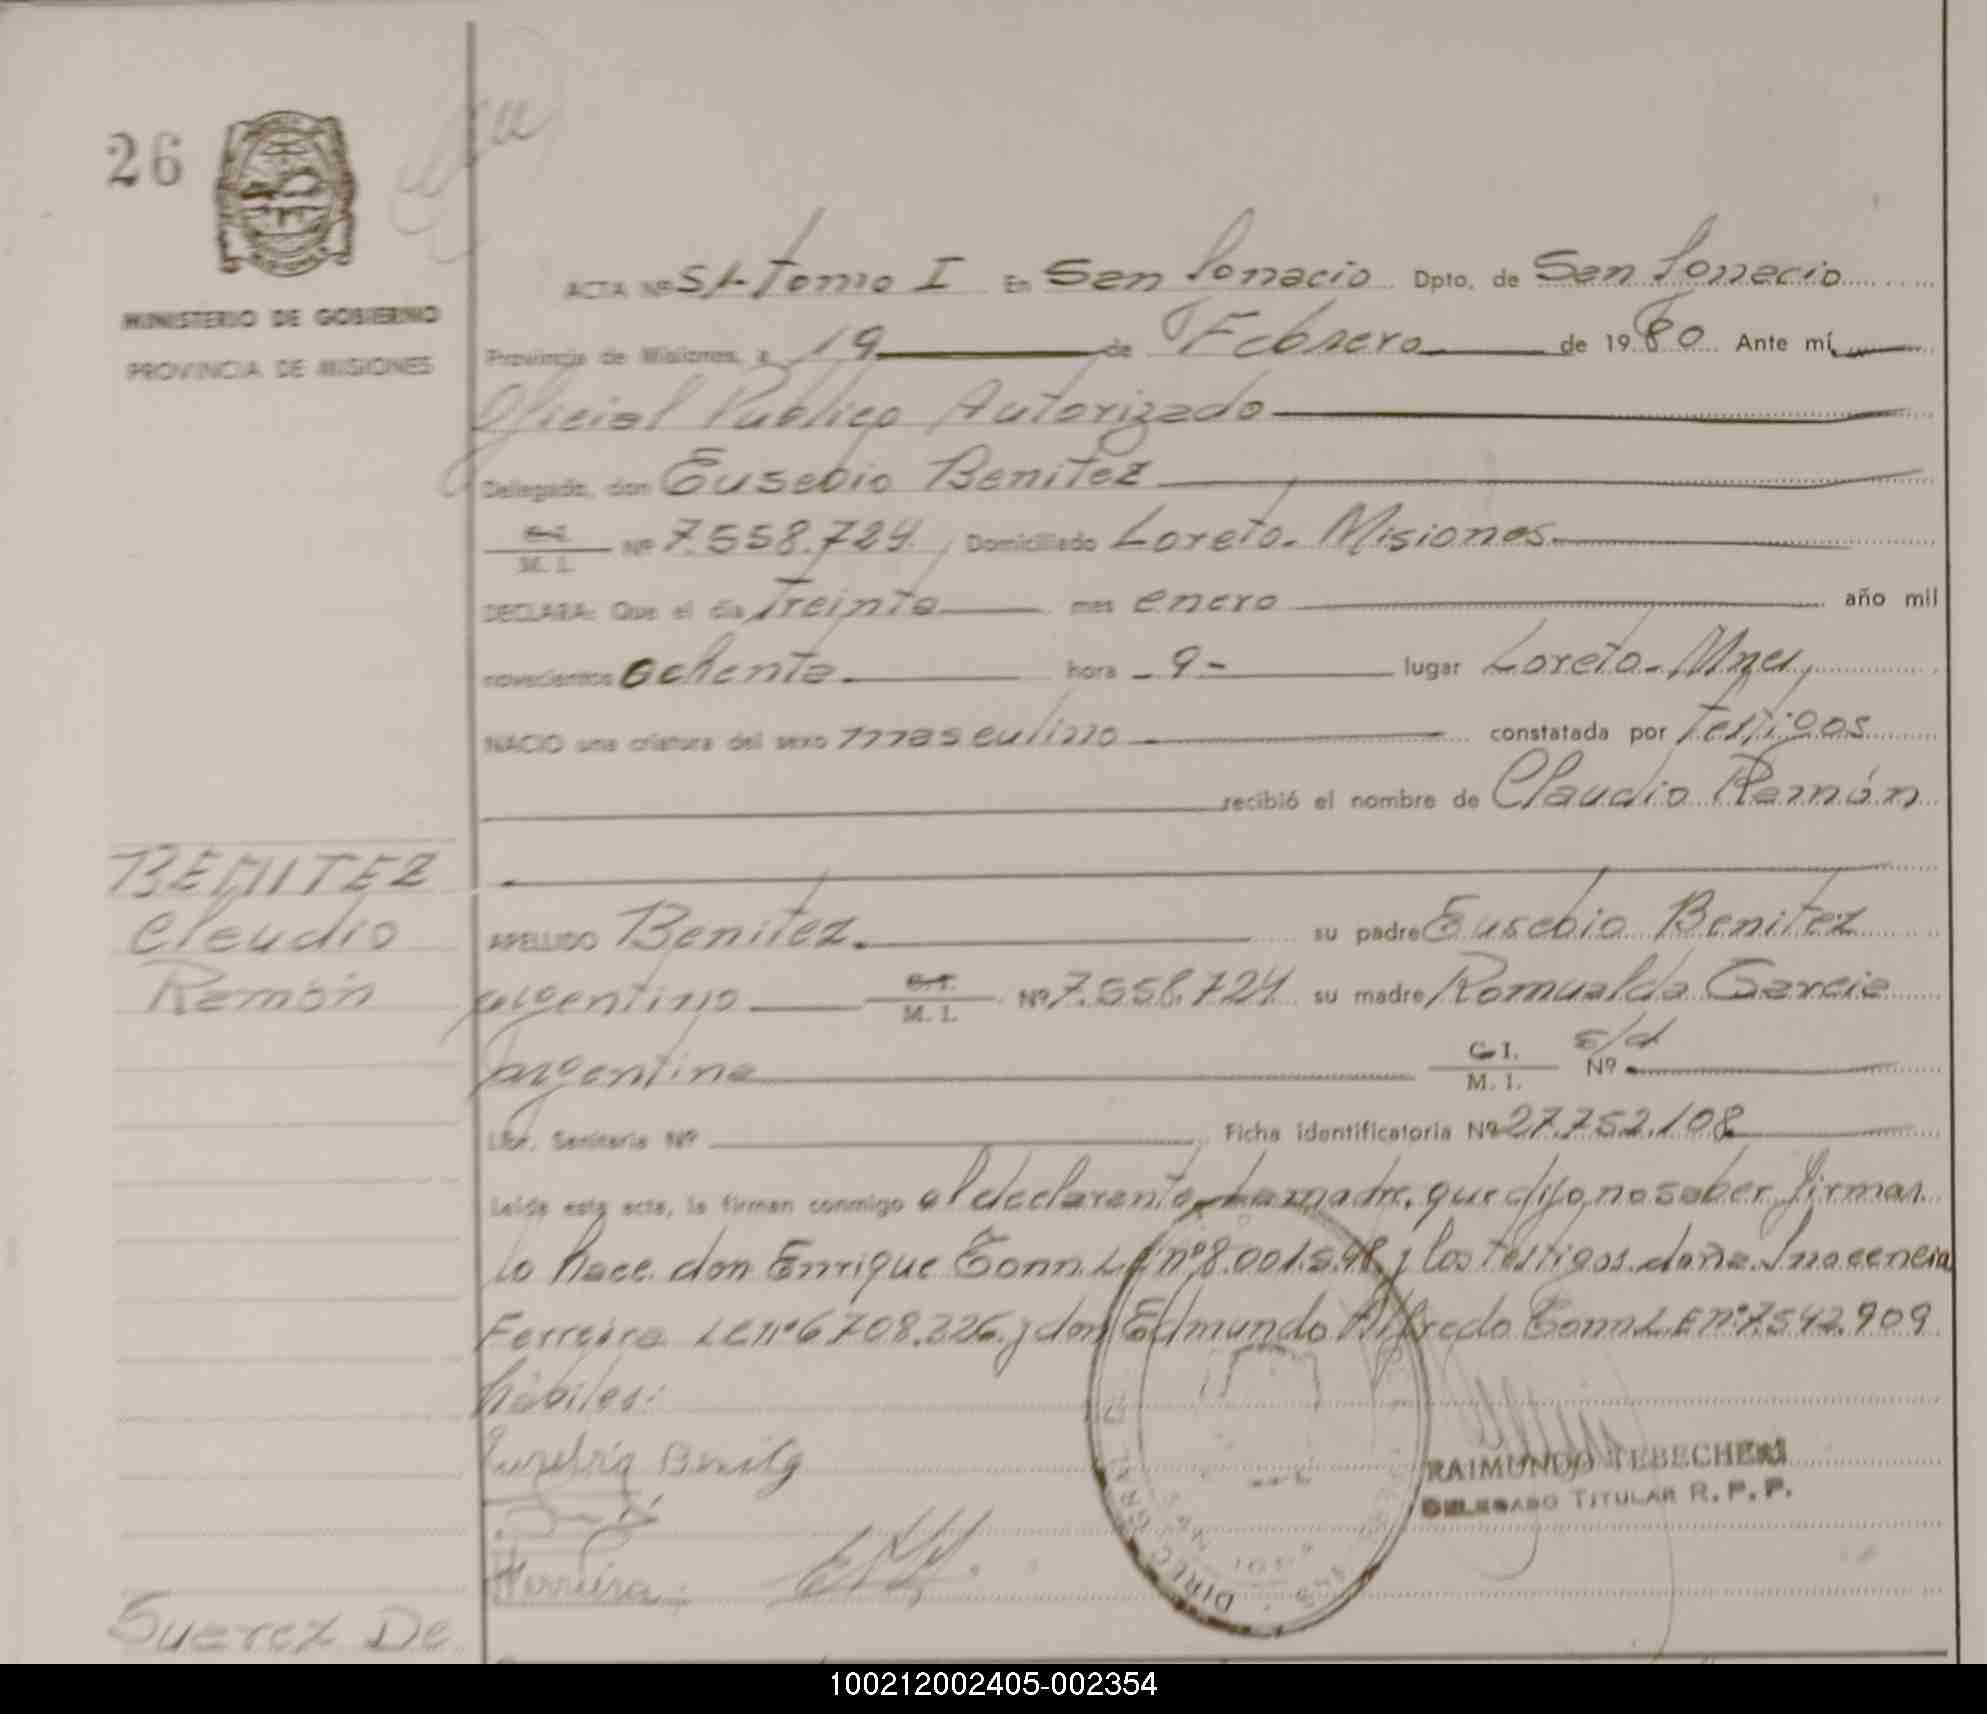 26
MINISTERIO DE GOBIERNO
PROVINCIA DE MISIONES
ACTA Nº 51- Tomo I En San Ignacio Dpto. de San Ignacio
Provincia de Misiones, a 19 de Febrero de 1980 Ante mí,
Oficial Publico Autorizado
Delegado, don Eusebio Benitez
C.I.
M. I. Nº 7.558.724 Domiciliado Loreto. Misiones.
DECLARA: Que el día Treinta mes enero año mil
novecientos ochenta hora 9- lugar Loreto. Mnes,
NACIO una criatura del sexo masculino constatada por Testigos
recibió el nombre de Claudio Ramón
BENITEZ
Claudio
Ramón
APELLIDO Benitez. su padre Eusebio Benitez
argentino C.I. M. I. Nº 7.558.724 su madre Romualda Garcia
argentina C.I. M. I. Nº s/d
Libr. Sanitaria Nº Ficha identificatoria Nº 27.752.108
Leída esta acta, la firman conmigo el declarante. La madre, que dijo no saber firmar
lo hace don Enrique Gonn. LE nº 8.001.598 y los Testigos. doña. Inocencia
Ferreira LE nº 6708.226. y don Edmundo Alfredo Gonn LE nº 7.542.909
hábiles:
Eusebio Benitez
Ferreira
RAIMUNDO TEBECHERI
DELEGADO TITULAR R. P. P.
Suarez De
100212002405-002354